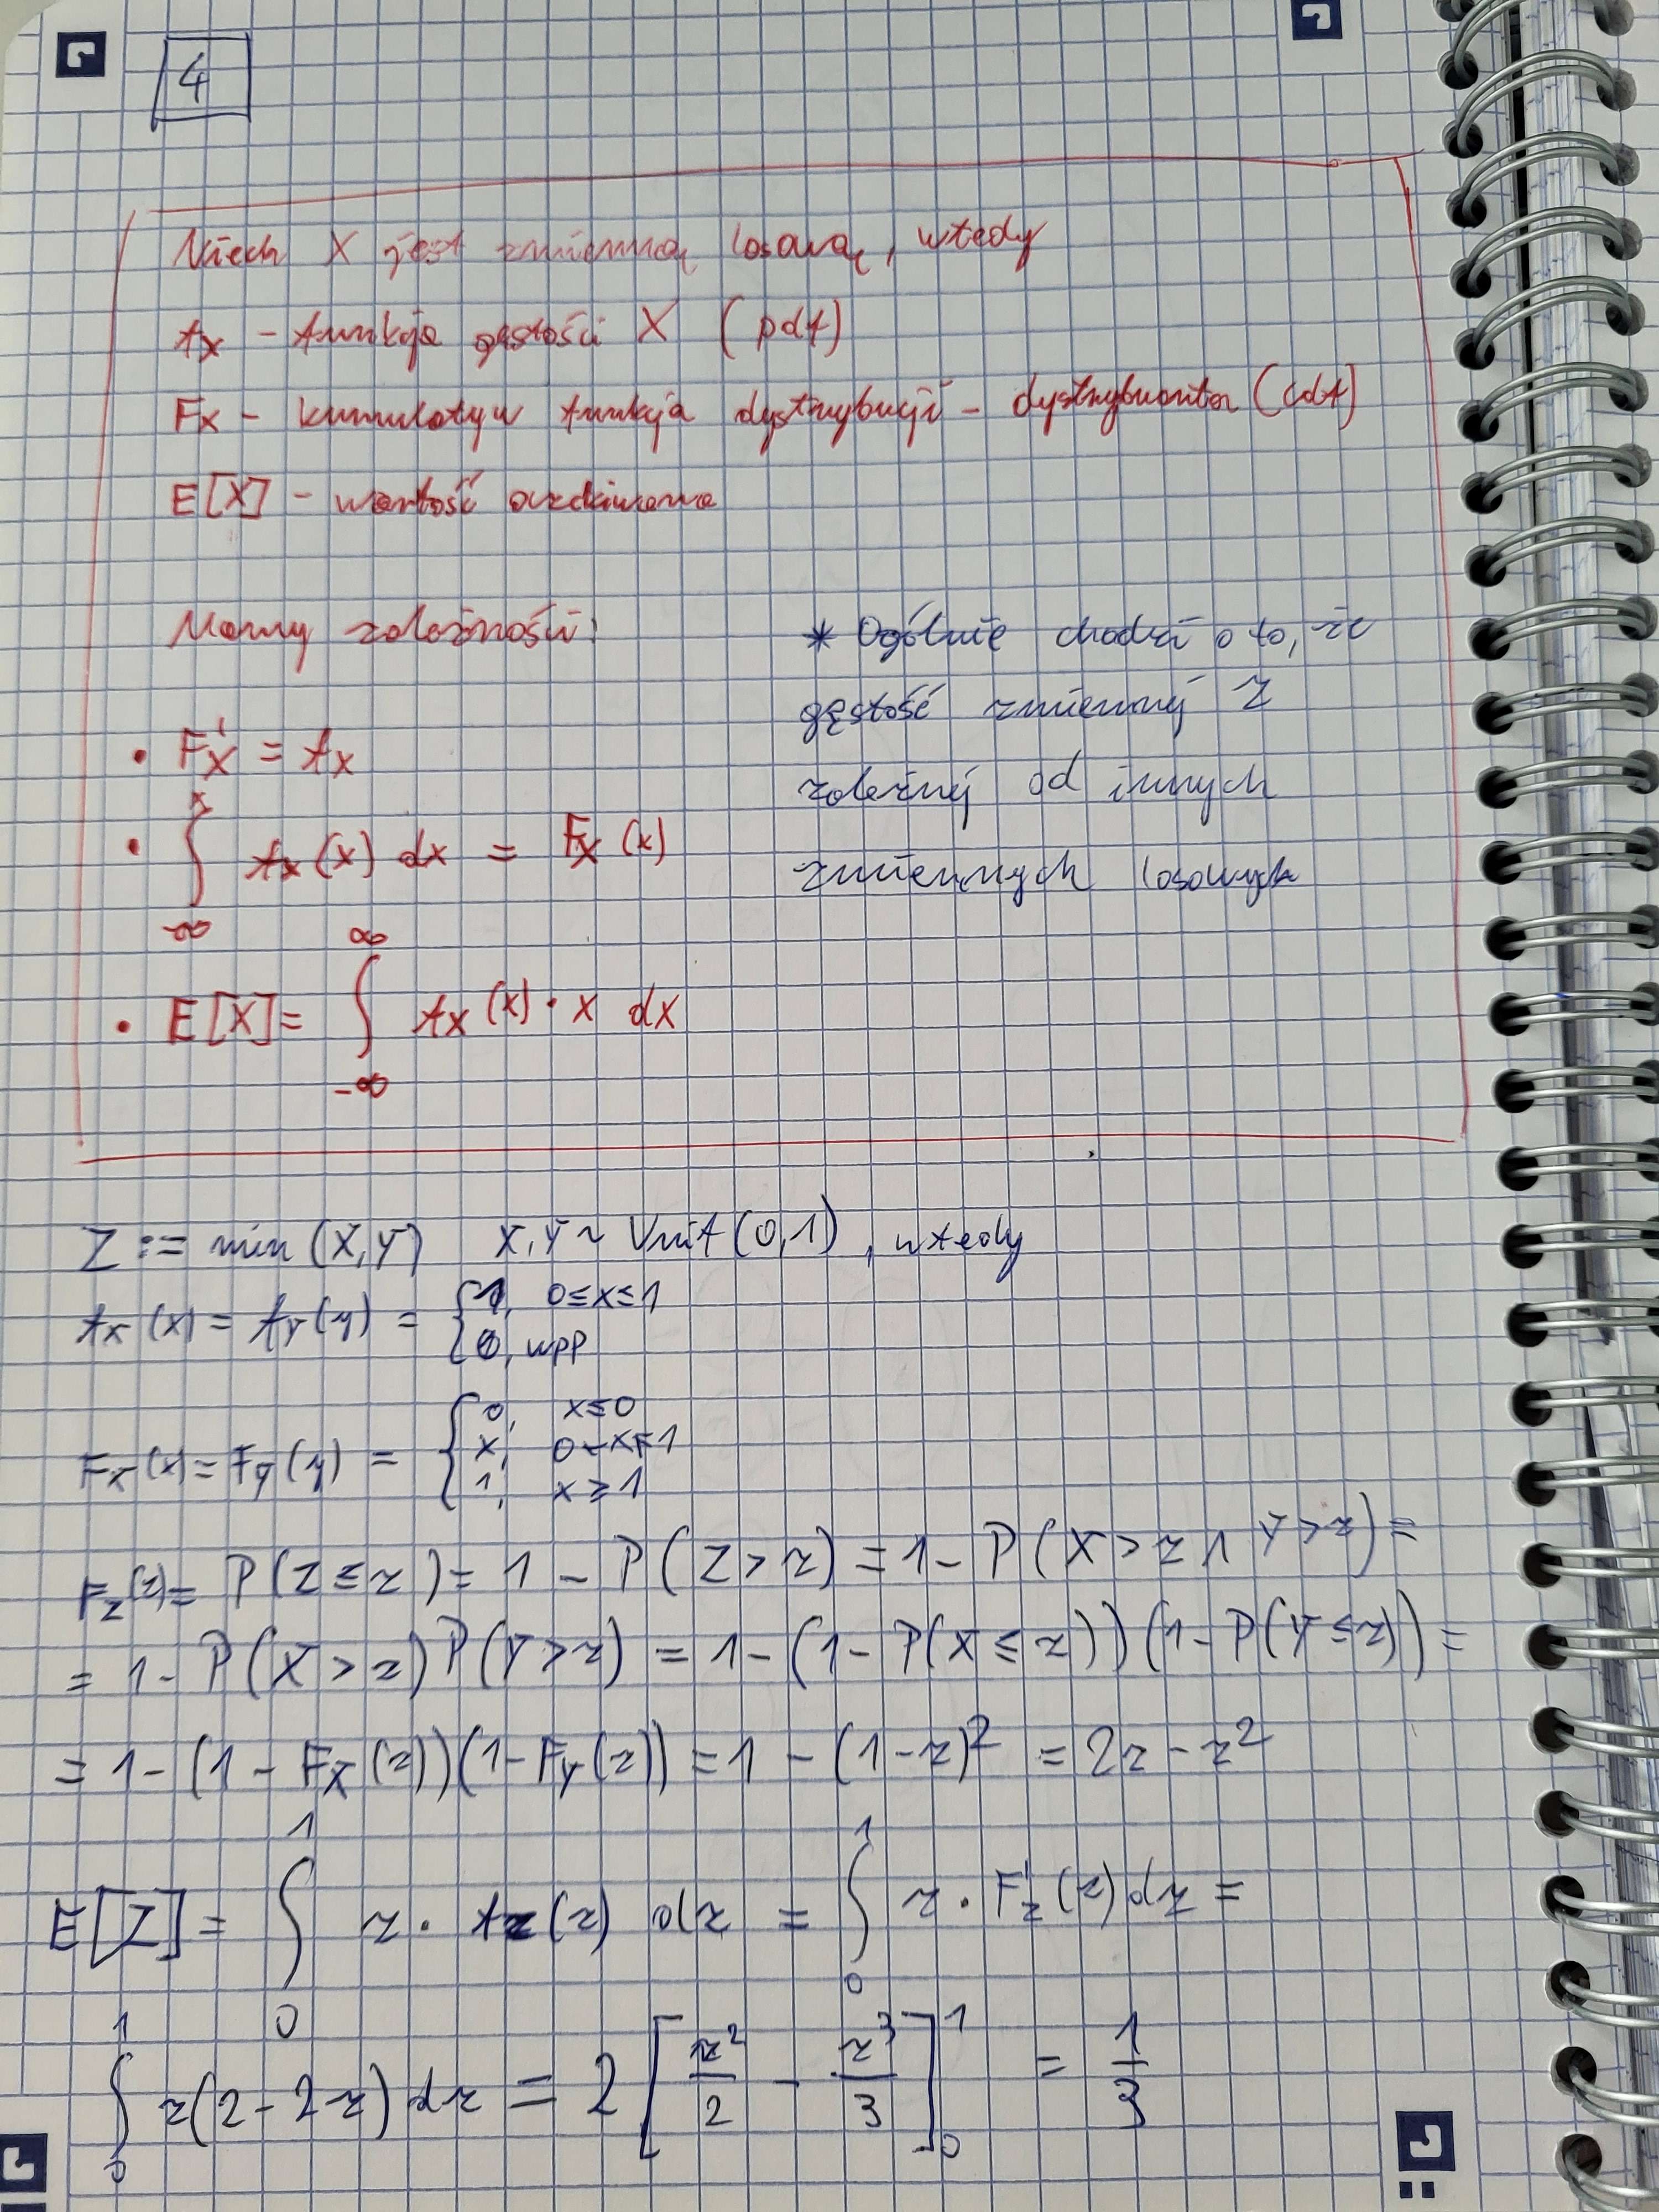 4
Niech X jest zmienną losową, wtedy
fx - funkcja gęstości X (pdf)
Fx - kumulatyw funkcja dystrybucji - dystrybuanta (cdf)
E[X] - wartość oczekiwana
Mamy zależności:
• F'x = fx
• ∫ₓ₋∞ fx(x) dx = Fx(x)
• E[X] = ∫ ∞ -∞ fx(x) · x dx
* Ogólnie chodzi o to, że
gęstość zmiennej Z
zależnej od innych
zmiennych losowych
Z := min(X,Y) X,Y ~ Unif(0,1), wtedy
fx(x) = fy(y) = { 1, 0≤x≤1
0, wpp
Fx(x) = Fy(y) = { 0, x≤0
x, 0<x<1
1, x≥1
Fz(z) = P(Z≤z) = 1 - P(Z>z) = 1 - P(X>z ∧ Y>z) =
= 1 - P(X>z)P(Y>z) = 1 - (1 - P(X≤z))(1 - P(Y≤z)) =
= 1 - (1 - Fx(z))(1 - Fy(z)) = 1 - (1-z)² = 2z - z²
E[Z] = ∫₀¹ z · fz(z) dz = ∫₀¹ z · F'z(z) dz =
∫₀¹ z(2-2z) dz = 2[z²/2 - z³/3]₀¹ = 1/3